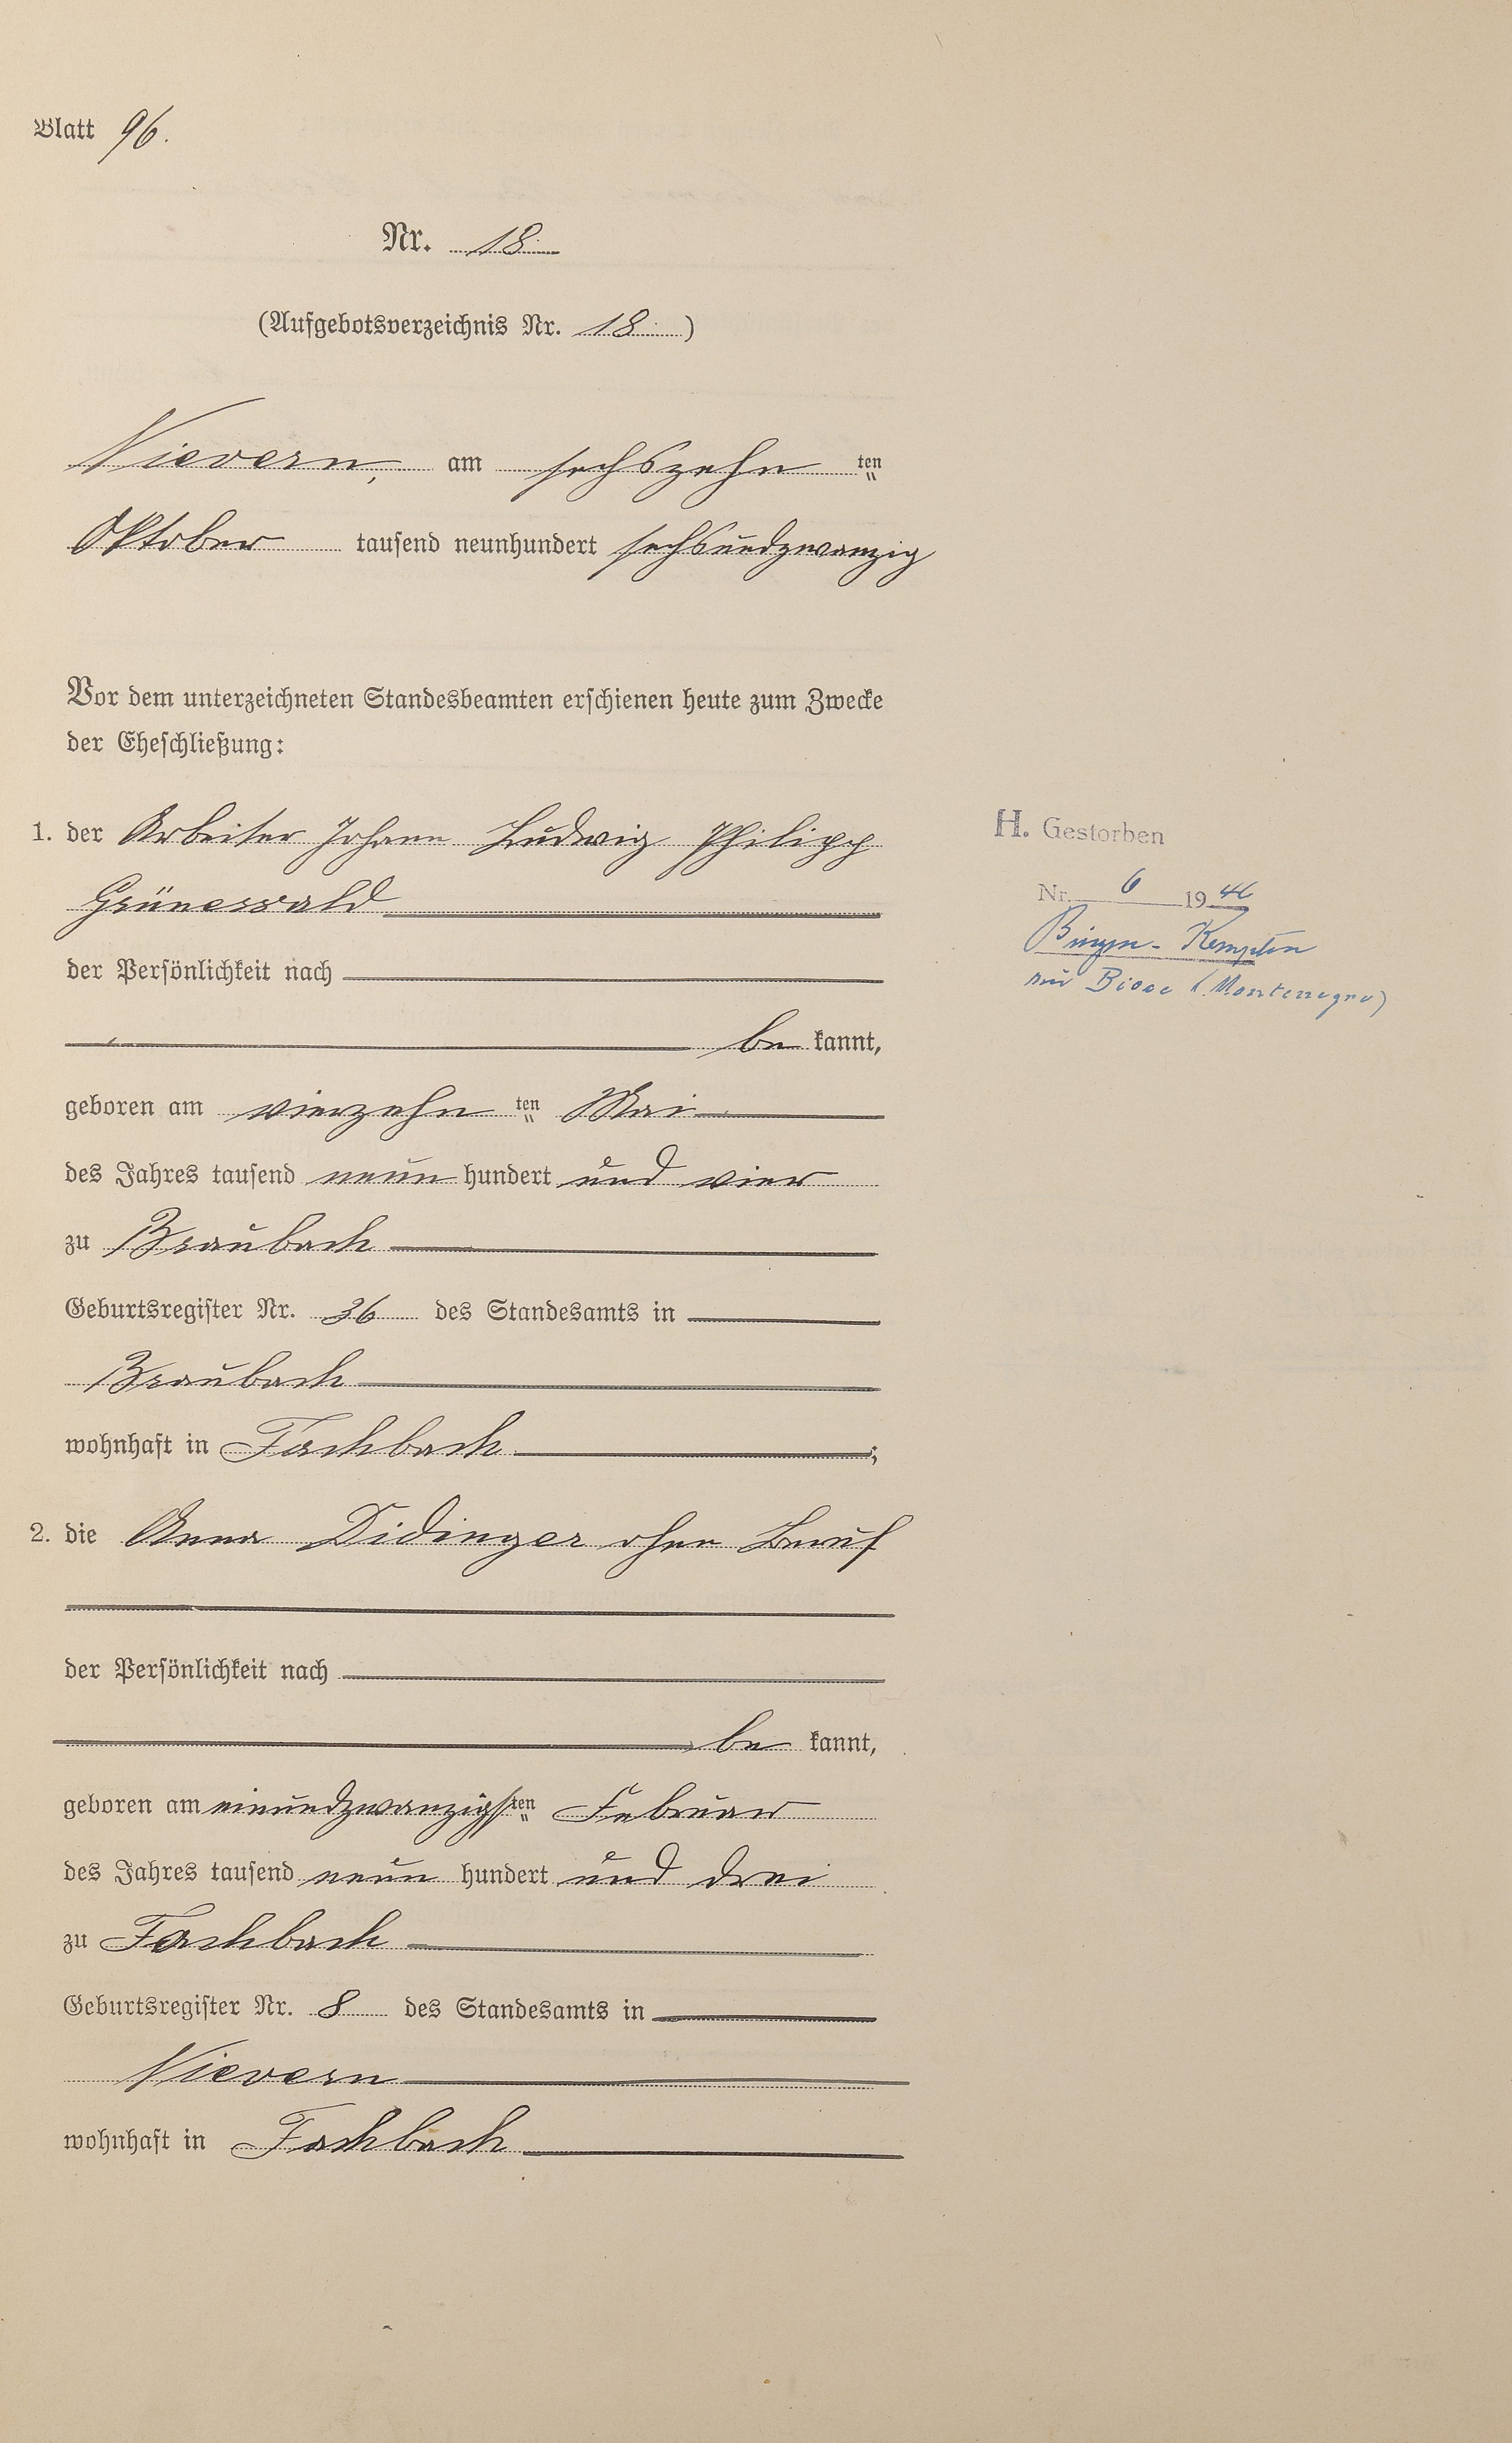 Blatt 96.
Nr. 18
(Aufgebotsverzeichnis Nr. 18)
Nievern, am sechszehn ten
Oktober tausend neunhundert sechsundzwanzig
Vor dem unterzeichneten Standesbeamten erschienen heute zum Zwecke
der Eheschließung:
1. der Arbeiter Johann Ludwig Philipp
Grünewald
der Persönlichkeit nach
be kannt,
geboren am vierzehn ten Mai
des Jahres tausend neun hundert und vier
zu Braubach
Geburtsregister Nr. 36 des Standesamts in
Braubach
wohnhaft in Fachbach;
2. die Anna Didinger ohne Beruf
der Persönlichkeit nach
be kannt,
geboren am einundzwanzigsten Februar
des Jahres tausend neun hundert und drei
zu Fachbach
Geburtsregister Nr. 8 des Standesamts in
Nievern
wohnhaft in Fachbach
H. Gestorben
Nr. 6 1946
Bingen-Kempten
Bioce (Montenegro)